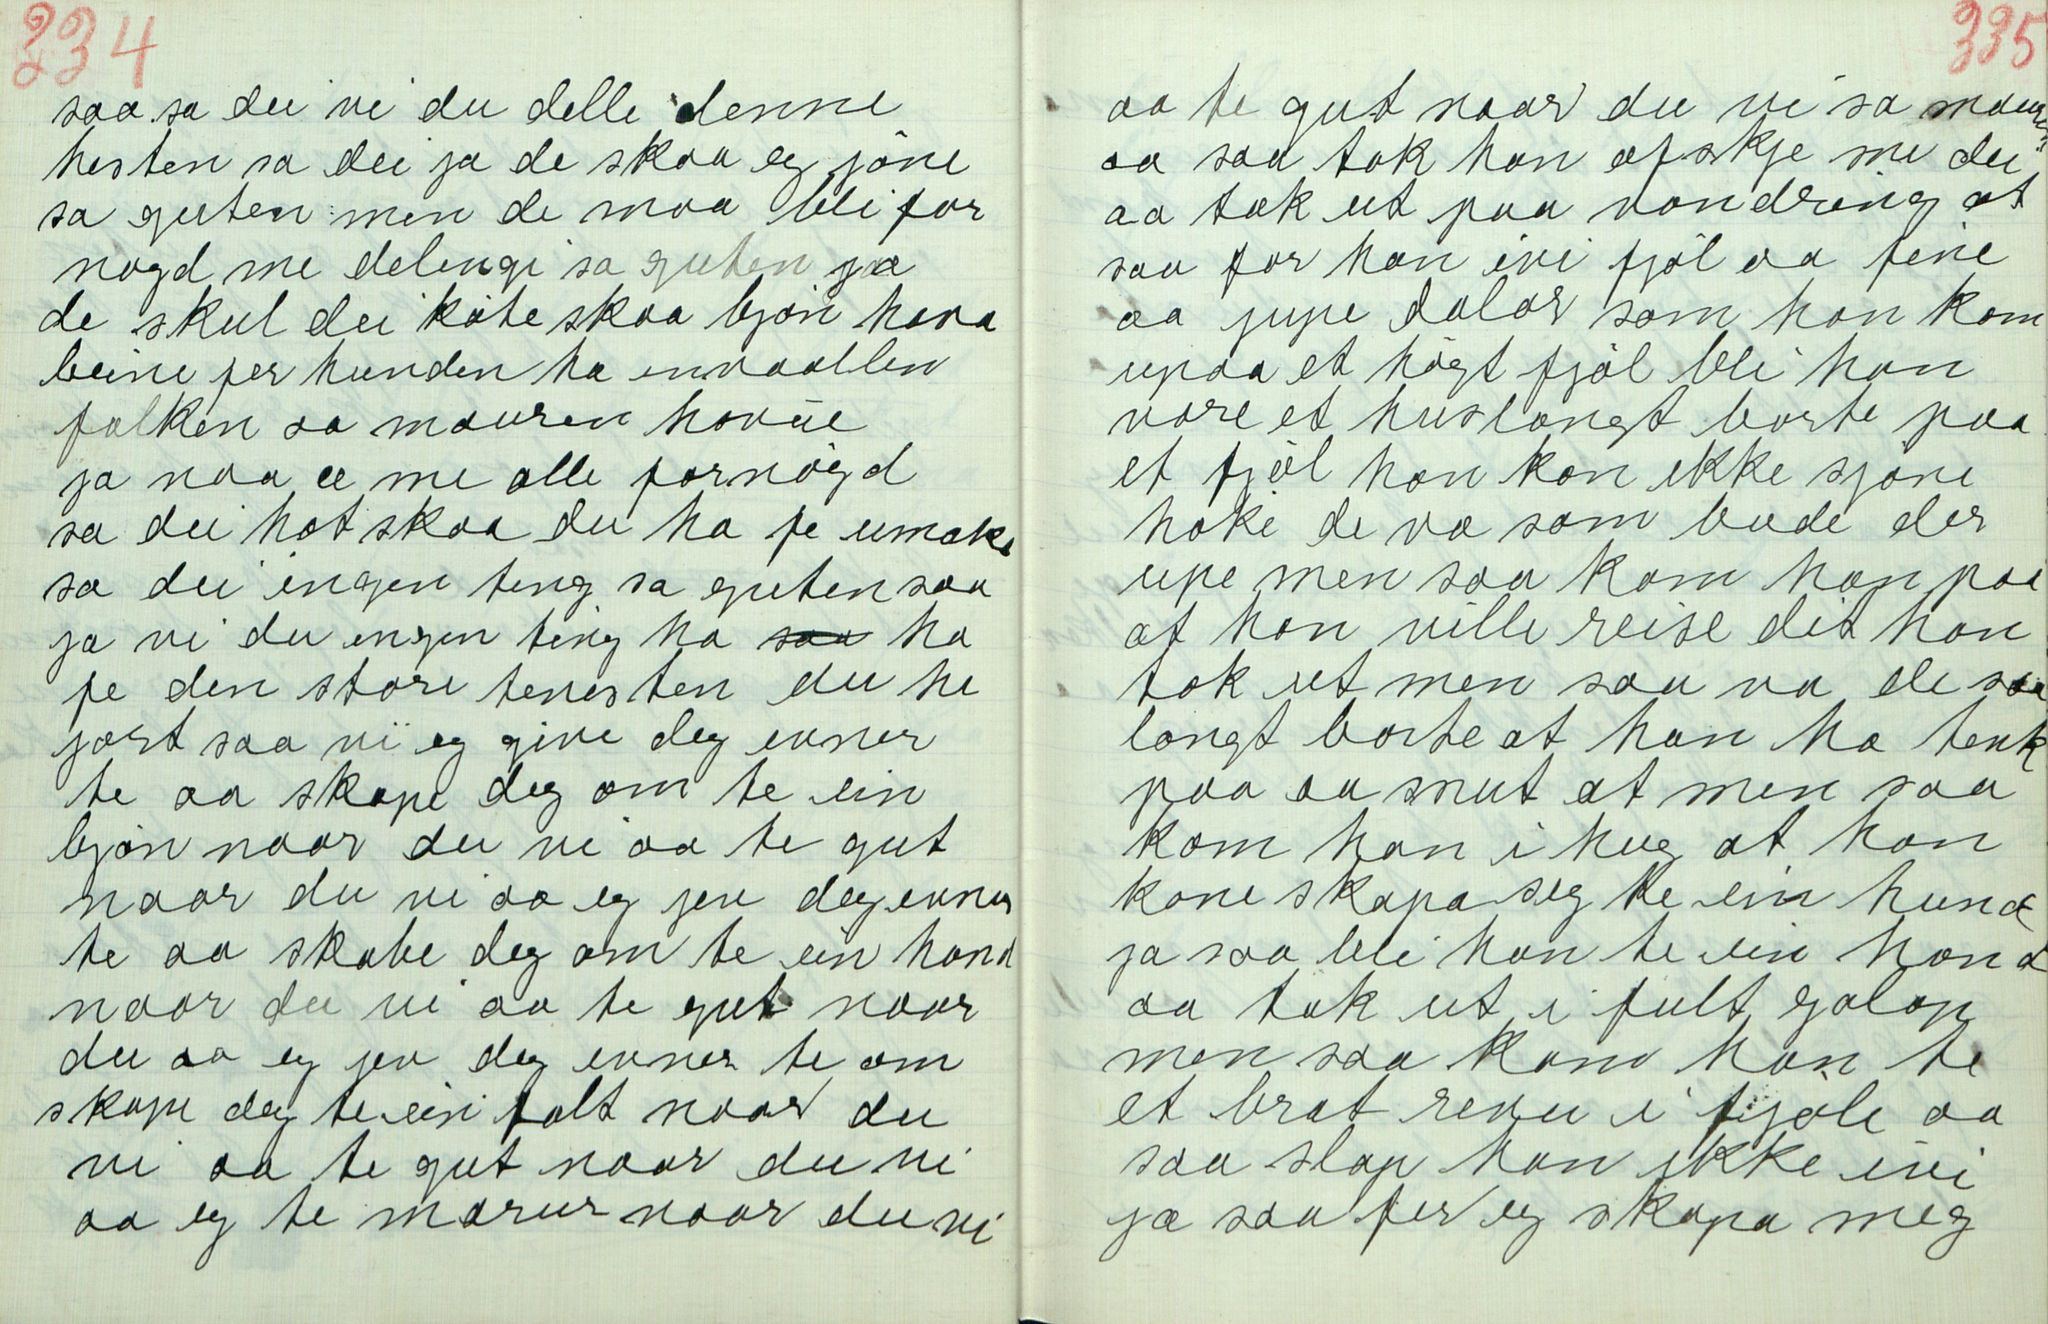 334
saa sa dei vi du delle denne
hesten sa dei ja de skaa eg jöne
sa guten men de maa bli for
nogd me delingi sa guten ja
de skul dei köte skaa bjön hava
beine fer hunden ha innvaallen
falken aa mauren hovue
ja naa æ me alle fornögd
sa dei hot skaa du ha fe umake
sa dei ingen ting sa guten saa
ja vi du ingen ting ha saa ha
fe den store tenesten du he
jort saa vi eg give deg evner
te aa skape deg om te ein
bjön naar du vi aa te gut
naar du vi aa eg jev deg evner
te aa skabe deg om te ein hond
naar du vi aa te gut naar
du aa eg jev deg evner te om
skape deg te ein falt naar du
vi aa te gut naar du vi
aa eg te marur naar du vi
335
aa te gut naar du vi sa mauren
aa saa tok han afskje me dei
aa tok ut paa vandring at
saa for han ivi fjöl aa fine
aa jupe dalar som han kom
upaa et högt fjöl bli han
vare et hus langt borte paa
et fjöl han kan ikke sjöne
hoke de va som bude der
upe men saa kom han paa
at han ville reise dit han
tok ut men saa va de saa
langt borte at han ha tenk
paa aa snut at men saa
kom han i hug at han
kone skapa seg te ein hund
ja saa bli han te ein hond
aa tok ut i fult galop
men saa kom han te
et brat revu i fjöle aa
saa slap han ikke ivi
ja saa fer eg skapa meg